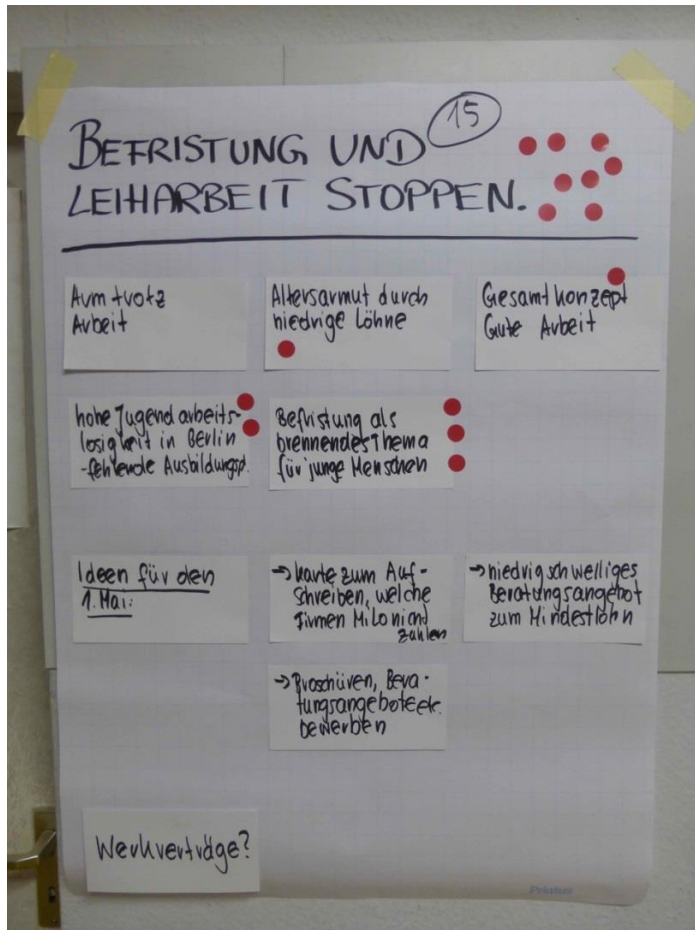 BEFRISTUNG UND
15
LEIHARBEIT STOPPEN.
Armut trotz
Arbeit
Altersarmut durch
niedrige Löhne
Gesamtkonzept
Gute Arbeit
hohe Jugendarbeits-
losigkeit in Berlin
-fehlende Ausbildungspl.
Befristung als
brennendes Thema
für junge Menschen
Ideen für den
1. Mai:
→ Karte zum Auf-
schreiben, welche
Firmen MiLo nicht
zahlen
→ niedrigschwelliges
Beratungsangebot
zum Mindestlohn
→ Broschüren, Bera-
tungsangebote etc.
bewerben
Werkverträge?